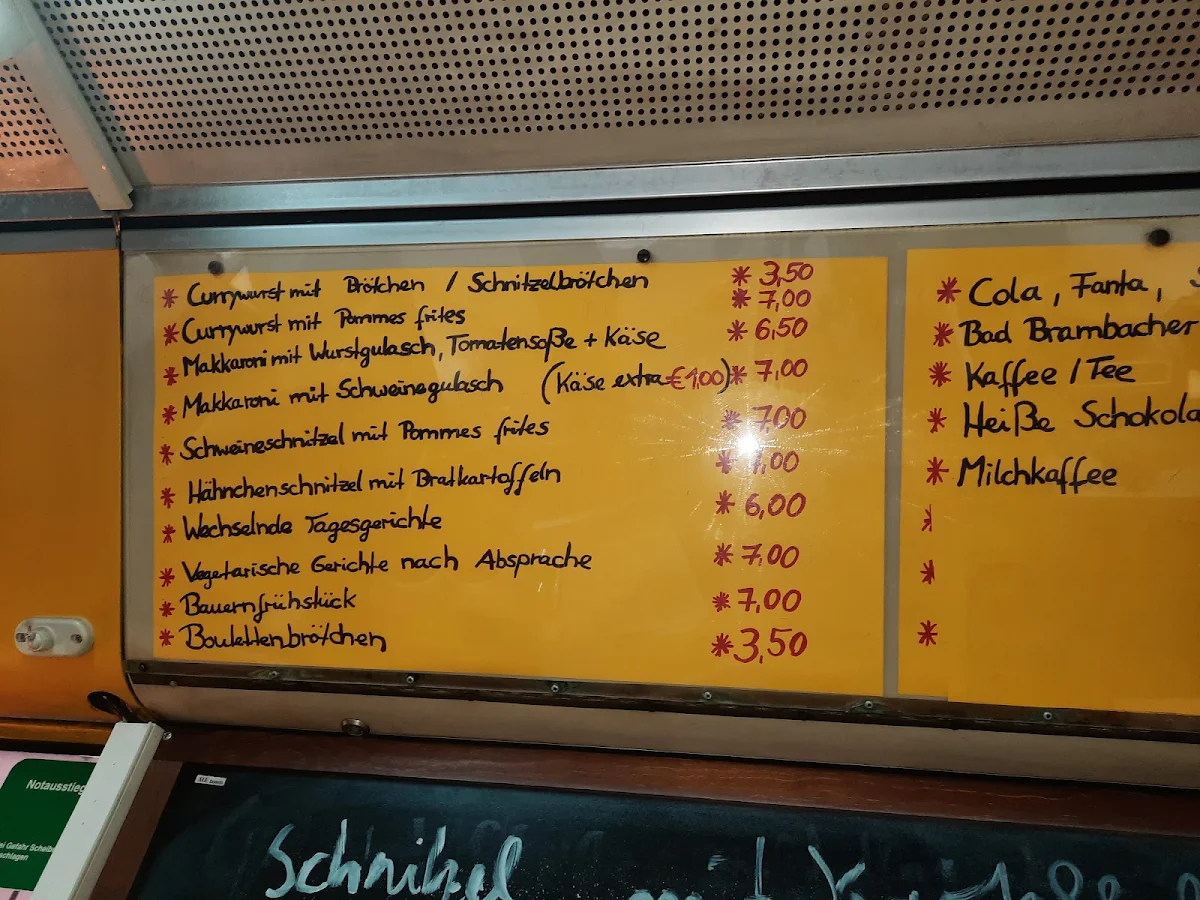 * Currywurst mit Brötchen / Schnitzelbrötchen * 3,50
* Currywurst mit Pommes frites * 7,00
* Makkaroni mit Wurstgulasch, Tomatensoße + Käse * 6,50
* Makkaroni mit Schweinegulasch (Käse extra €1,00) * 7,00
* Schweineschnitzel mit Pommes frites * 7,00
* Hähnchenschnitzel mit Bratkartoffeln
* Wechselnde Tagesgerichte * 6,00
* Vegetarische Gerichte nach Absprache * 7,00
* Bauernfrühstück * 7,00
* Boulettenbrötchen * 3,50
* Cola, Fanta,
* Bad Brambacher
* Kaffee / Tee
* Heiße Schokola
* Milchkaffee
Notausstieg
Schnitzel